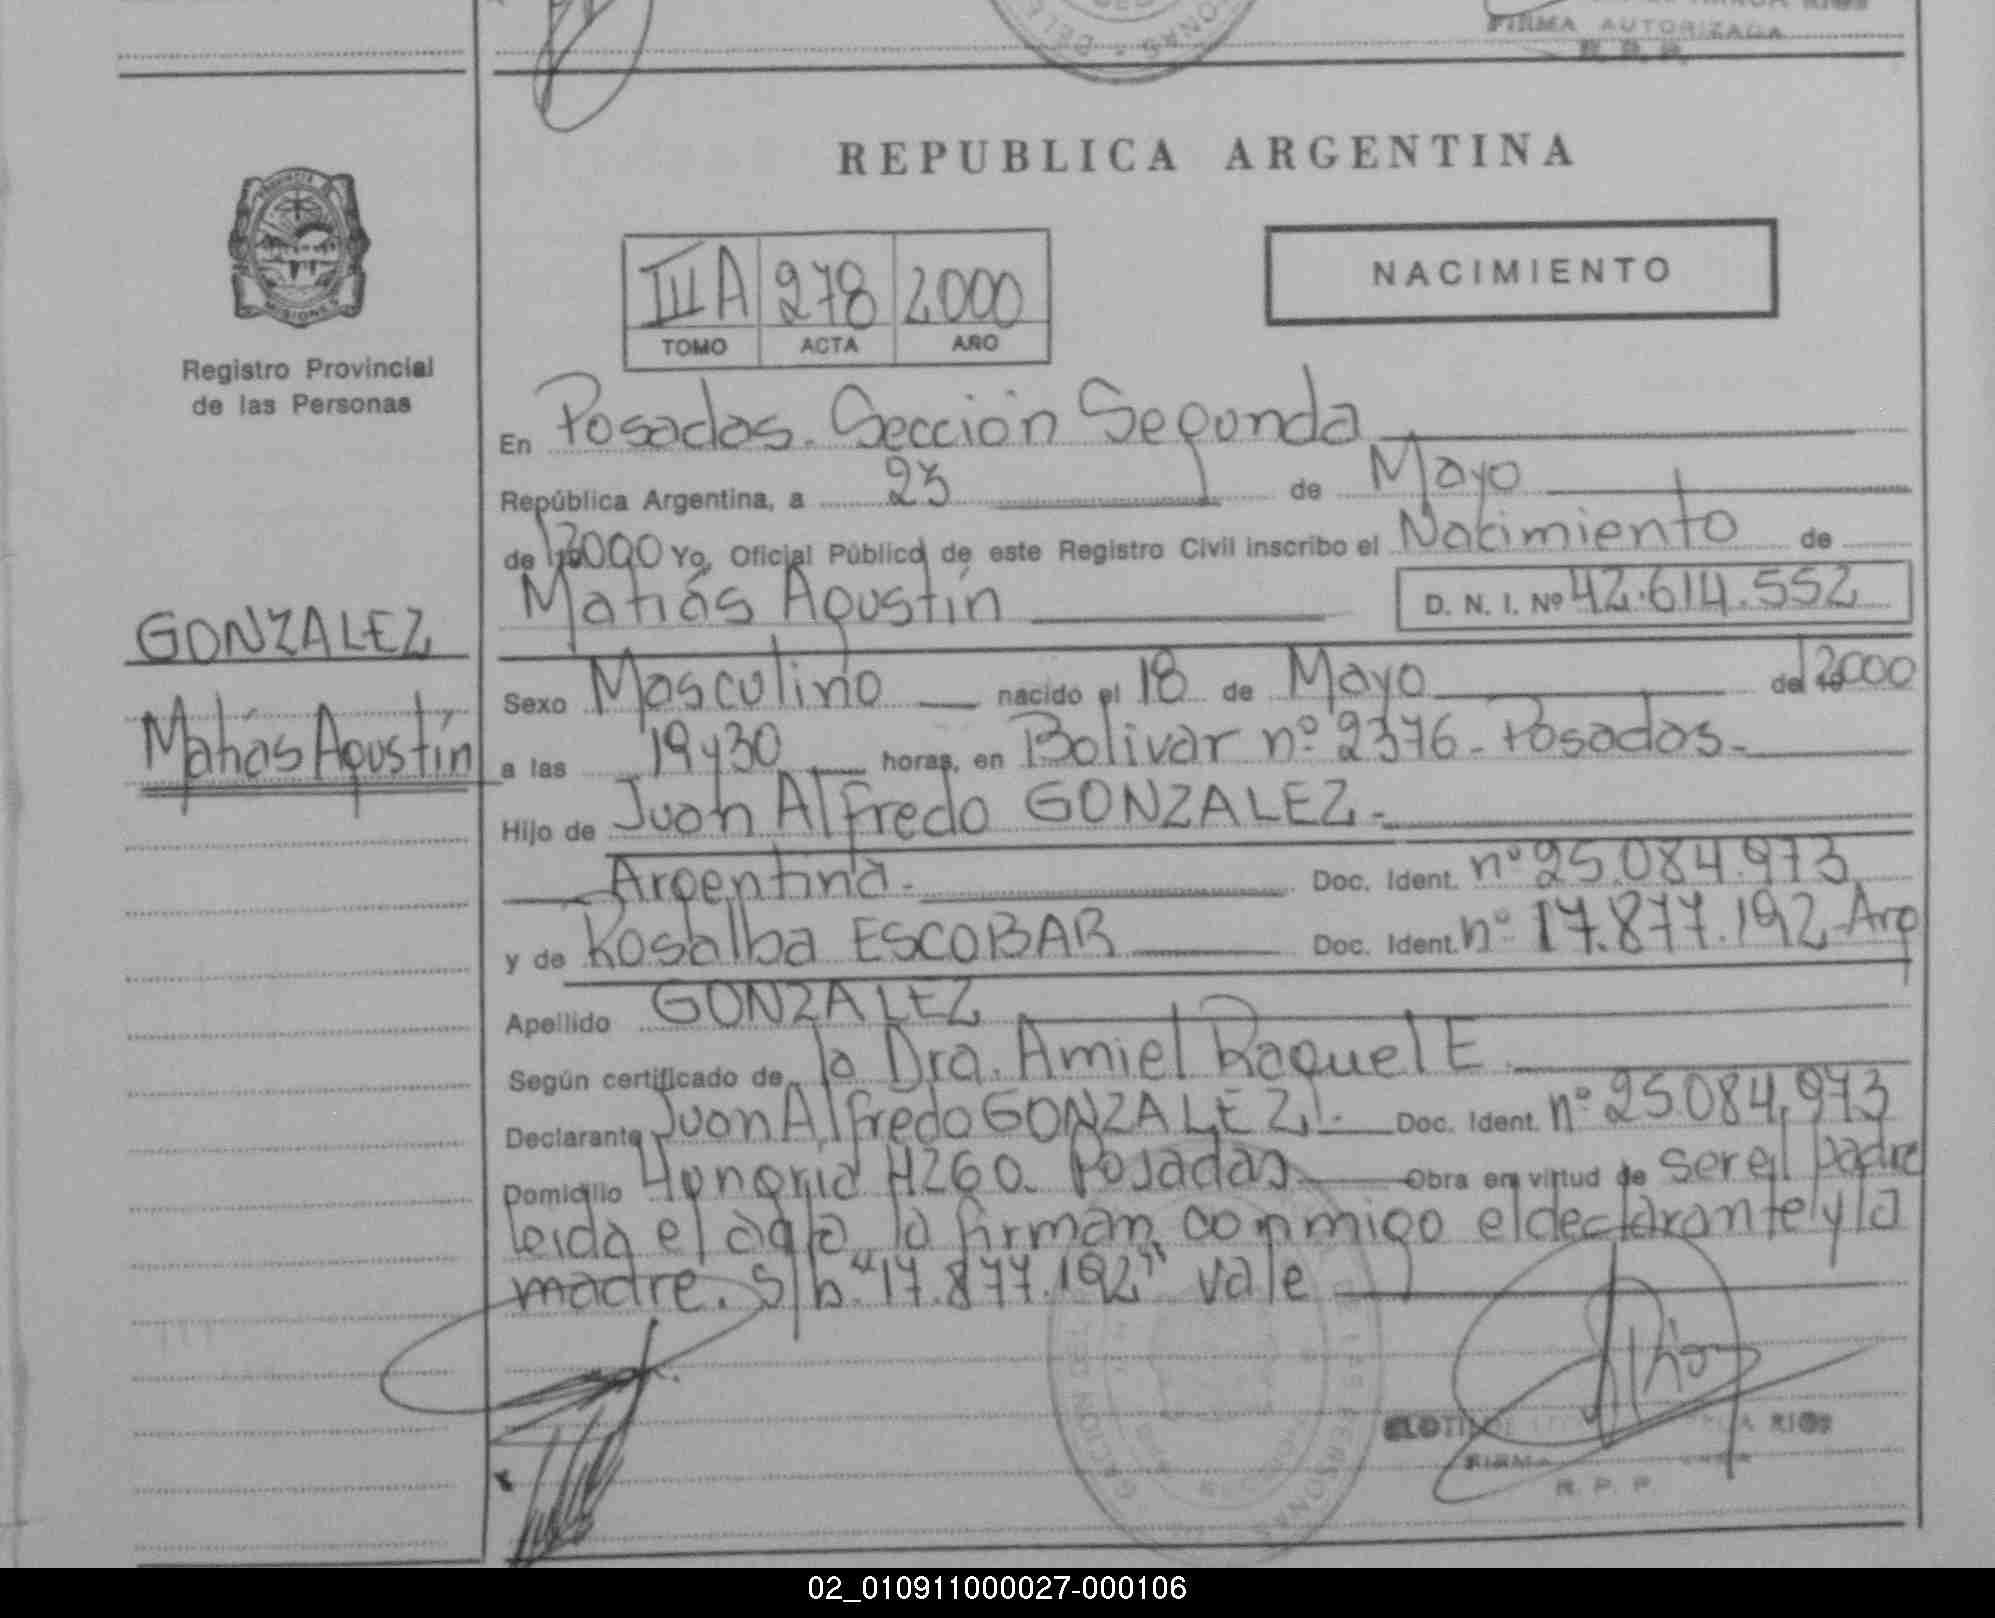 FIRMA AUTORIZADA
R. P. P.
REPUBLICA ARGENTINA
PROVINCIA DE
MISIONES
Registro Provincial
de las Personas
IIIA 278 2000
TOMO ACTA AÑO
NACIMIENTO
En Posadas. Sección Segunda
República Argentina, a 23 de Mayo
de 2000 Yo, Oficial Público de este Registro Civil inscribo el Nacimiento de
Matías Agustín D. N. I. Nº 42.614.552
GONZALEZ
Matías Agustín
Sexo Masculino nacido el 18 de Mayo de 2000
a las 19 y 30 horas, en Bolivar nº 2376 - Posadas -
Hijo de Juan Alfredo GONZALEZ -
Argentina - Doc. Ident. nº 25.084.973
y de Rosalba ESCOBAR Doc. Ident. nº 17.877.192 Arg
Apellido GONZALEZ
Según certificado de la Dra. Amiel Raquel E
Declarante Juan Alfredo GONZALEZ - Doc. Ident. nº 25.084.973
Domicilio Hungría 4260 Posadas Obra en virtud de ser el padre
leida el acta la firman conmigo el declarante y la
madre. S/b "17.877.192" vale
RIOS
FIRMA
R. P. P.
02_010911000027-000106